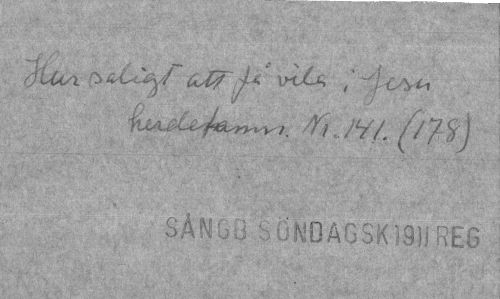 Hur saligt att få vila i Jesu
herdefamn. Nr. 141. (178)
SÅNGB SÖNDAGSK 1911 REG